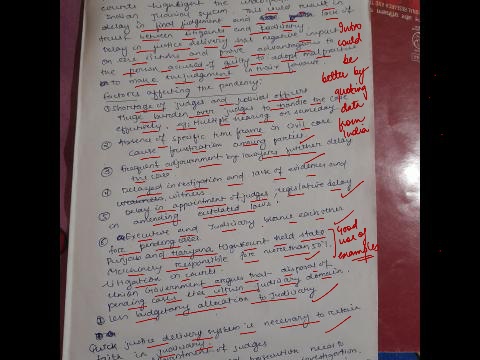 counts highlight the
Indian Judiciary system. This could result in
delay in final judgement and loss of
trust between litigants and Judiciary
Delay in justice delivery that negative impact
on the victims and prove advantageous to
the person accused of guilty to adopt malpractices
to make the judgement in their favour
factors affecting the pendency:
① Shortage of judges and judicial officers
Huge burden over judges to handle the case
effectively. eg: Multiple hearing on sameday
② Absence of specific time frame in civil case
cause frustration among parties
③ Frequent adjournment by lawyers further delay
the case
④ Delayed investigation and lack of evidence and
witness
⑤ Delay in appointment of judges, legislative delay
in amending outdated laws
⑥ Executive and Judiciary blame each other
for pending cases
Punjab and Haryana Highcourt held state
Machinery responsible for more than 50%
litigation in court.
Union Government argues that disposal of
pending cases lies within judiciary domain.
⑦ Less budgetary allocation to Judiciary
Quick justice delivery system is necessary to retain
faith in judiciary
of judges
need to
investigation
Intro
could
be
better by
quoting
data
from
India
Good
use of
examples